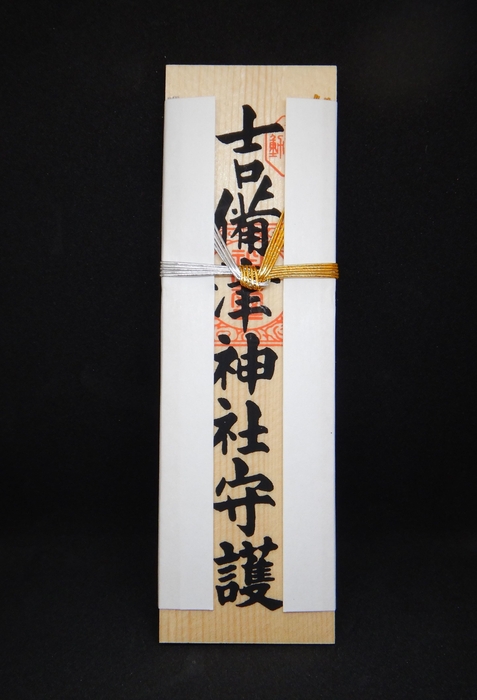 吉備津神社守護